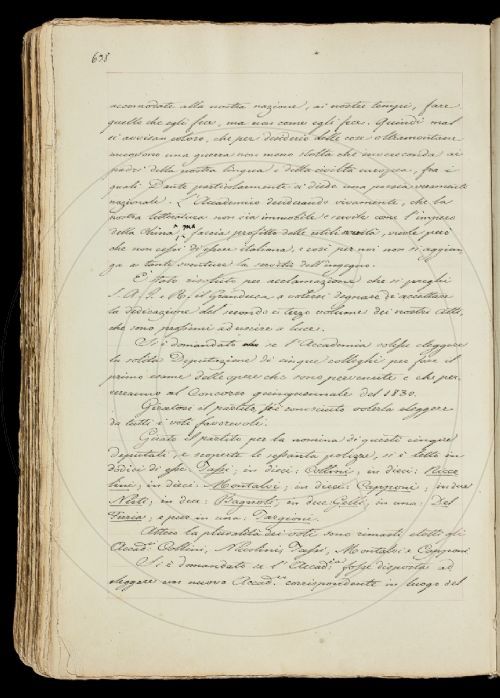 638
accomodate alla nostra nazione, ai nostri tempi, fare
quello che egli fece, ma non come egli fece. Quindi mal
si avvisan coloro, che per desiderio delle cose oltramontane
muovono una guerra non meno stolta che inverecunda ai
padri della nostra lingua e della civiltà europea, fra i
quali Dante particolarmente ci diede una poesia veramente
nazionale. L'Accademia desiderando vivamente, che la
nostra letteratura non sia immobile e servile come l'impero
della China, ma faccia profitto delle utili novità, vuole però
che non cessi di essere italiana, e così per noi non si aggiun
ga a tante sventure la servitù dell'ingegno.
È stato risoluto per acclamazione che si preghi
S. A. I. e R. il Granduca, a volersi degnare di accettare
la dedicazione del secondo e terzo volume dei nostri Atti,
che sono prossimi ad uscire a luce.
Si è domandato se l'Accademia volesse eleggere
la solita Deputazione di cinque colleghi per fare il
primo esame delle opere che sono pervenute e che per,
verranno al Concorso quinquennale del 1830.
Giratosi il partito, fu conosciuto volerla eleggere
da tutti i voti favorevoli.
Girato il partito per la nomina di questi cinque
deputati, e scoperte le sessanta polizze, si è letto in
dodici di esse: Tassi; in dieci: Collini; in dieci: Nicco
lini; in dieci: Montalvi; in dieci: Capponi; in due
Nesti; in due: Bagnoli; in due: Gelli; in una: Del
Furia; e pure in una: Targioni.
Attesa la pluralità dei voti sono rimasti eletti gli
Accad.ci Collini, Niccolini, Tassi, Montalvi e Capponi
Si è domandato se l'Accad.ia fosse disposta ad
eleggere un nuovo Accad.co corrispondente in luogo del